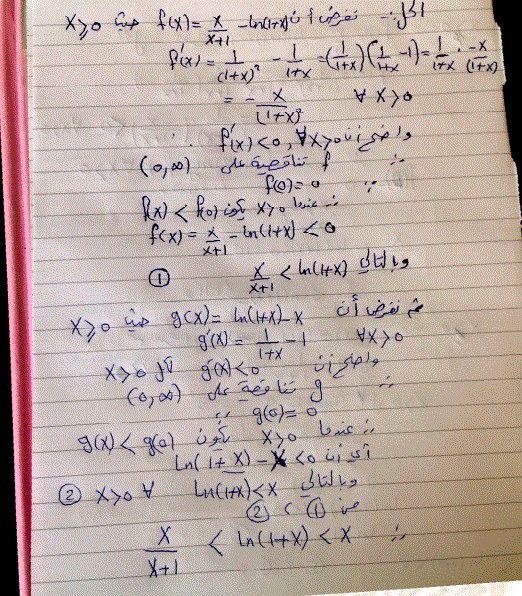 الحل:- نفرض أن f(x) = x/(x+1) - ln(1+x) حيث x ≥ 0
f'(x) = 1/(1+x)² - 1/(1+x) = (1/(1+x))(1/(1+x) - 1) = 1/(1+x) · -x/(1+x)
= - x/(1+x)² ∀ x > 0
واضح أن f'(x) < 0, ∀ x > 0
∴ f تناقصية على (0, ∞)
∵ f(0) = 0
∴ عندما x > 0 يكون f(x) < f(0)
f(x) = x/(x+1) - ln(1+x) < 0
وبالتالي x/(x+1) < ln(1+x) ①
ثم نفرض أن g(x) = ln(1+x) - x حيث x ≥ 0
g'(x) = 1/(1+x) - 1 ∀ x > 0
واضح أن g'(x) < 0 لكل x > 0
∴ g تناقصية على (0, ∞)
∵ g(0) = 0
∴ عندما x > 0 يكون g(x) < g(0)
أي أن ln(1+x) - x < 0
وبالتالي ln(1+x) < x ∀ x > 0 ②
من ① و ②
∴ x/(x+1) < ln(1+x) < x